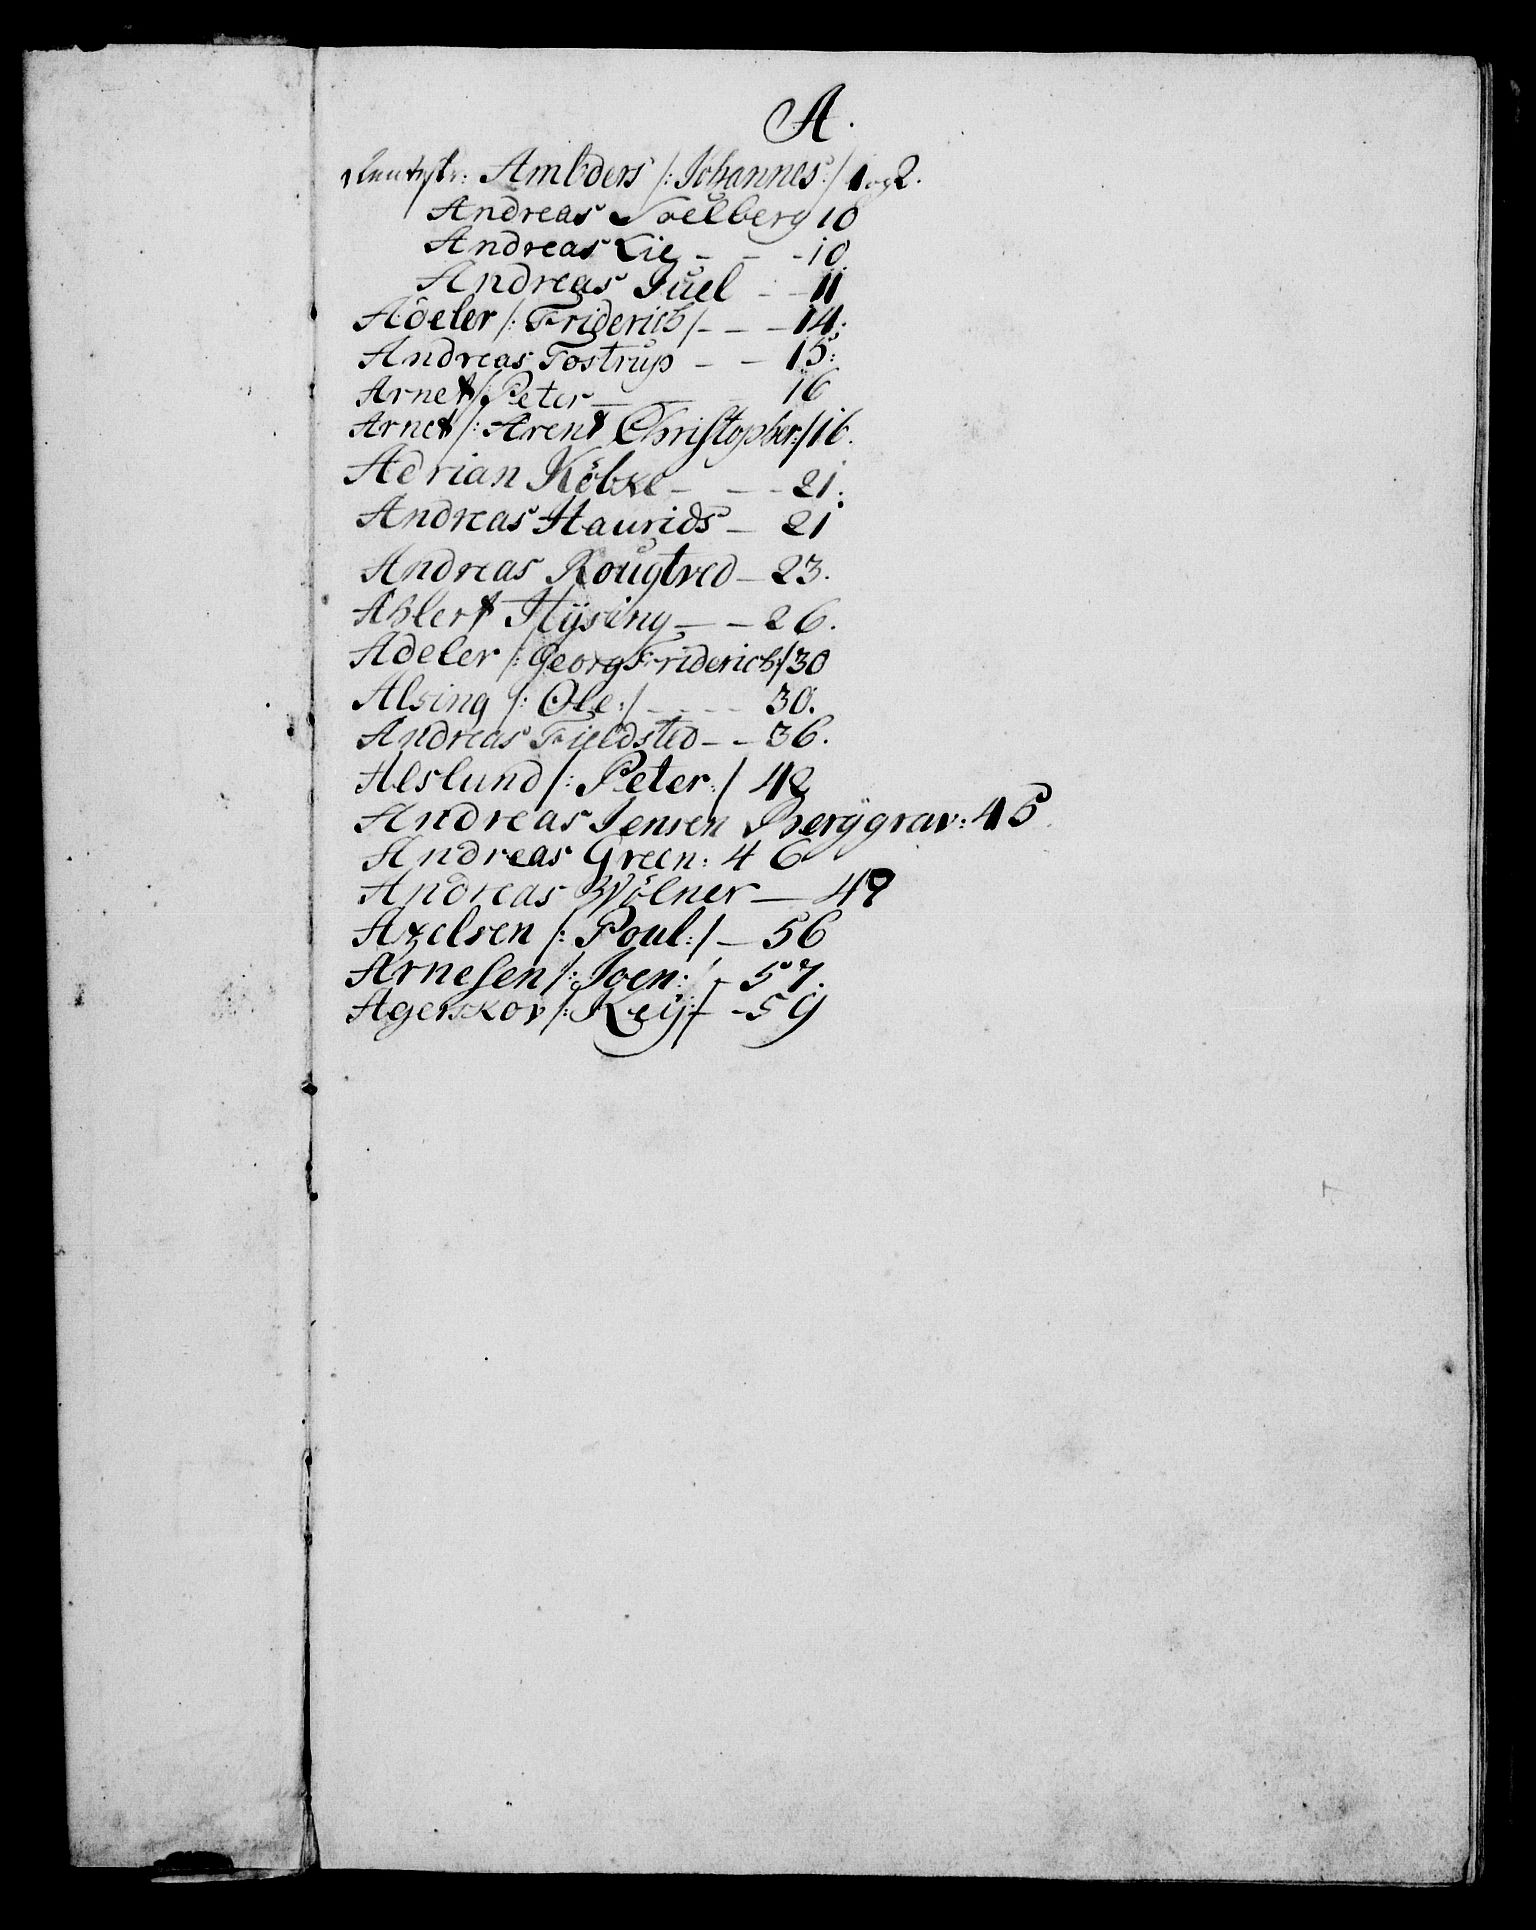 A.
Rentyst: Ambders /: Johannes :/ 1 og 2.
Andreas Soelberg 10
Andreas Lie - - - 10.
Andreas Juel - - 11
Adeler /: Friderich / - - - 14:
Andreas Tostrup - - 15:
Arnet /: Peter - - - 16
Arnet /: Arent Christopher :/ 16.
Adrian Köbke - - - 21:
Andreas Haurids - 21
Andreas Rougtved - 23.
Ahlert Hÿsing - - 26.
Adeler /: Georg Friderich :/ 30
Alsing /: Ole :/ - - - - 30.
Andreas Fieldsted - - 36.
Alslund /: Peter :/ 42
Andreas Jensen Berggrav: 45.
Andreas Green: 46
Andreas Wölner - 47
Axelsen /: Poul :/ - 56
Arnesen /: Joen :/ - 57.
Agerskov /: Keÿ :/ - - 59